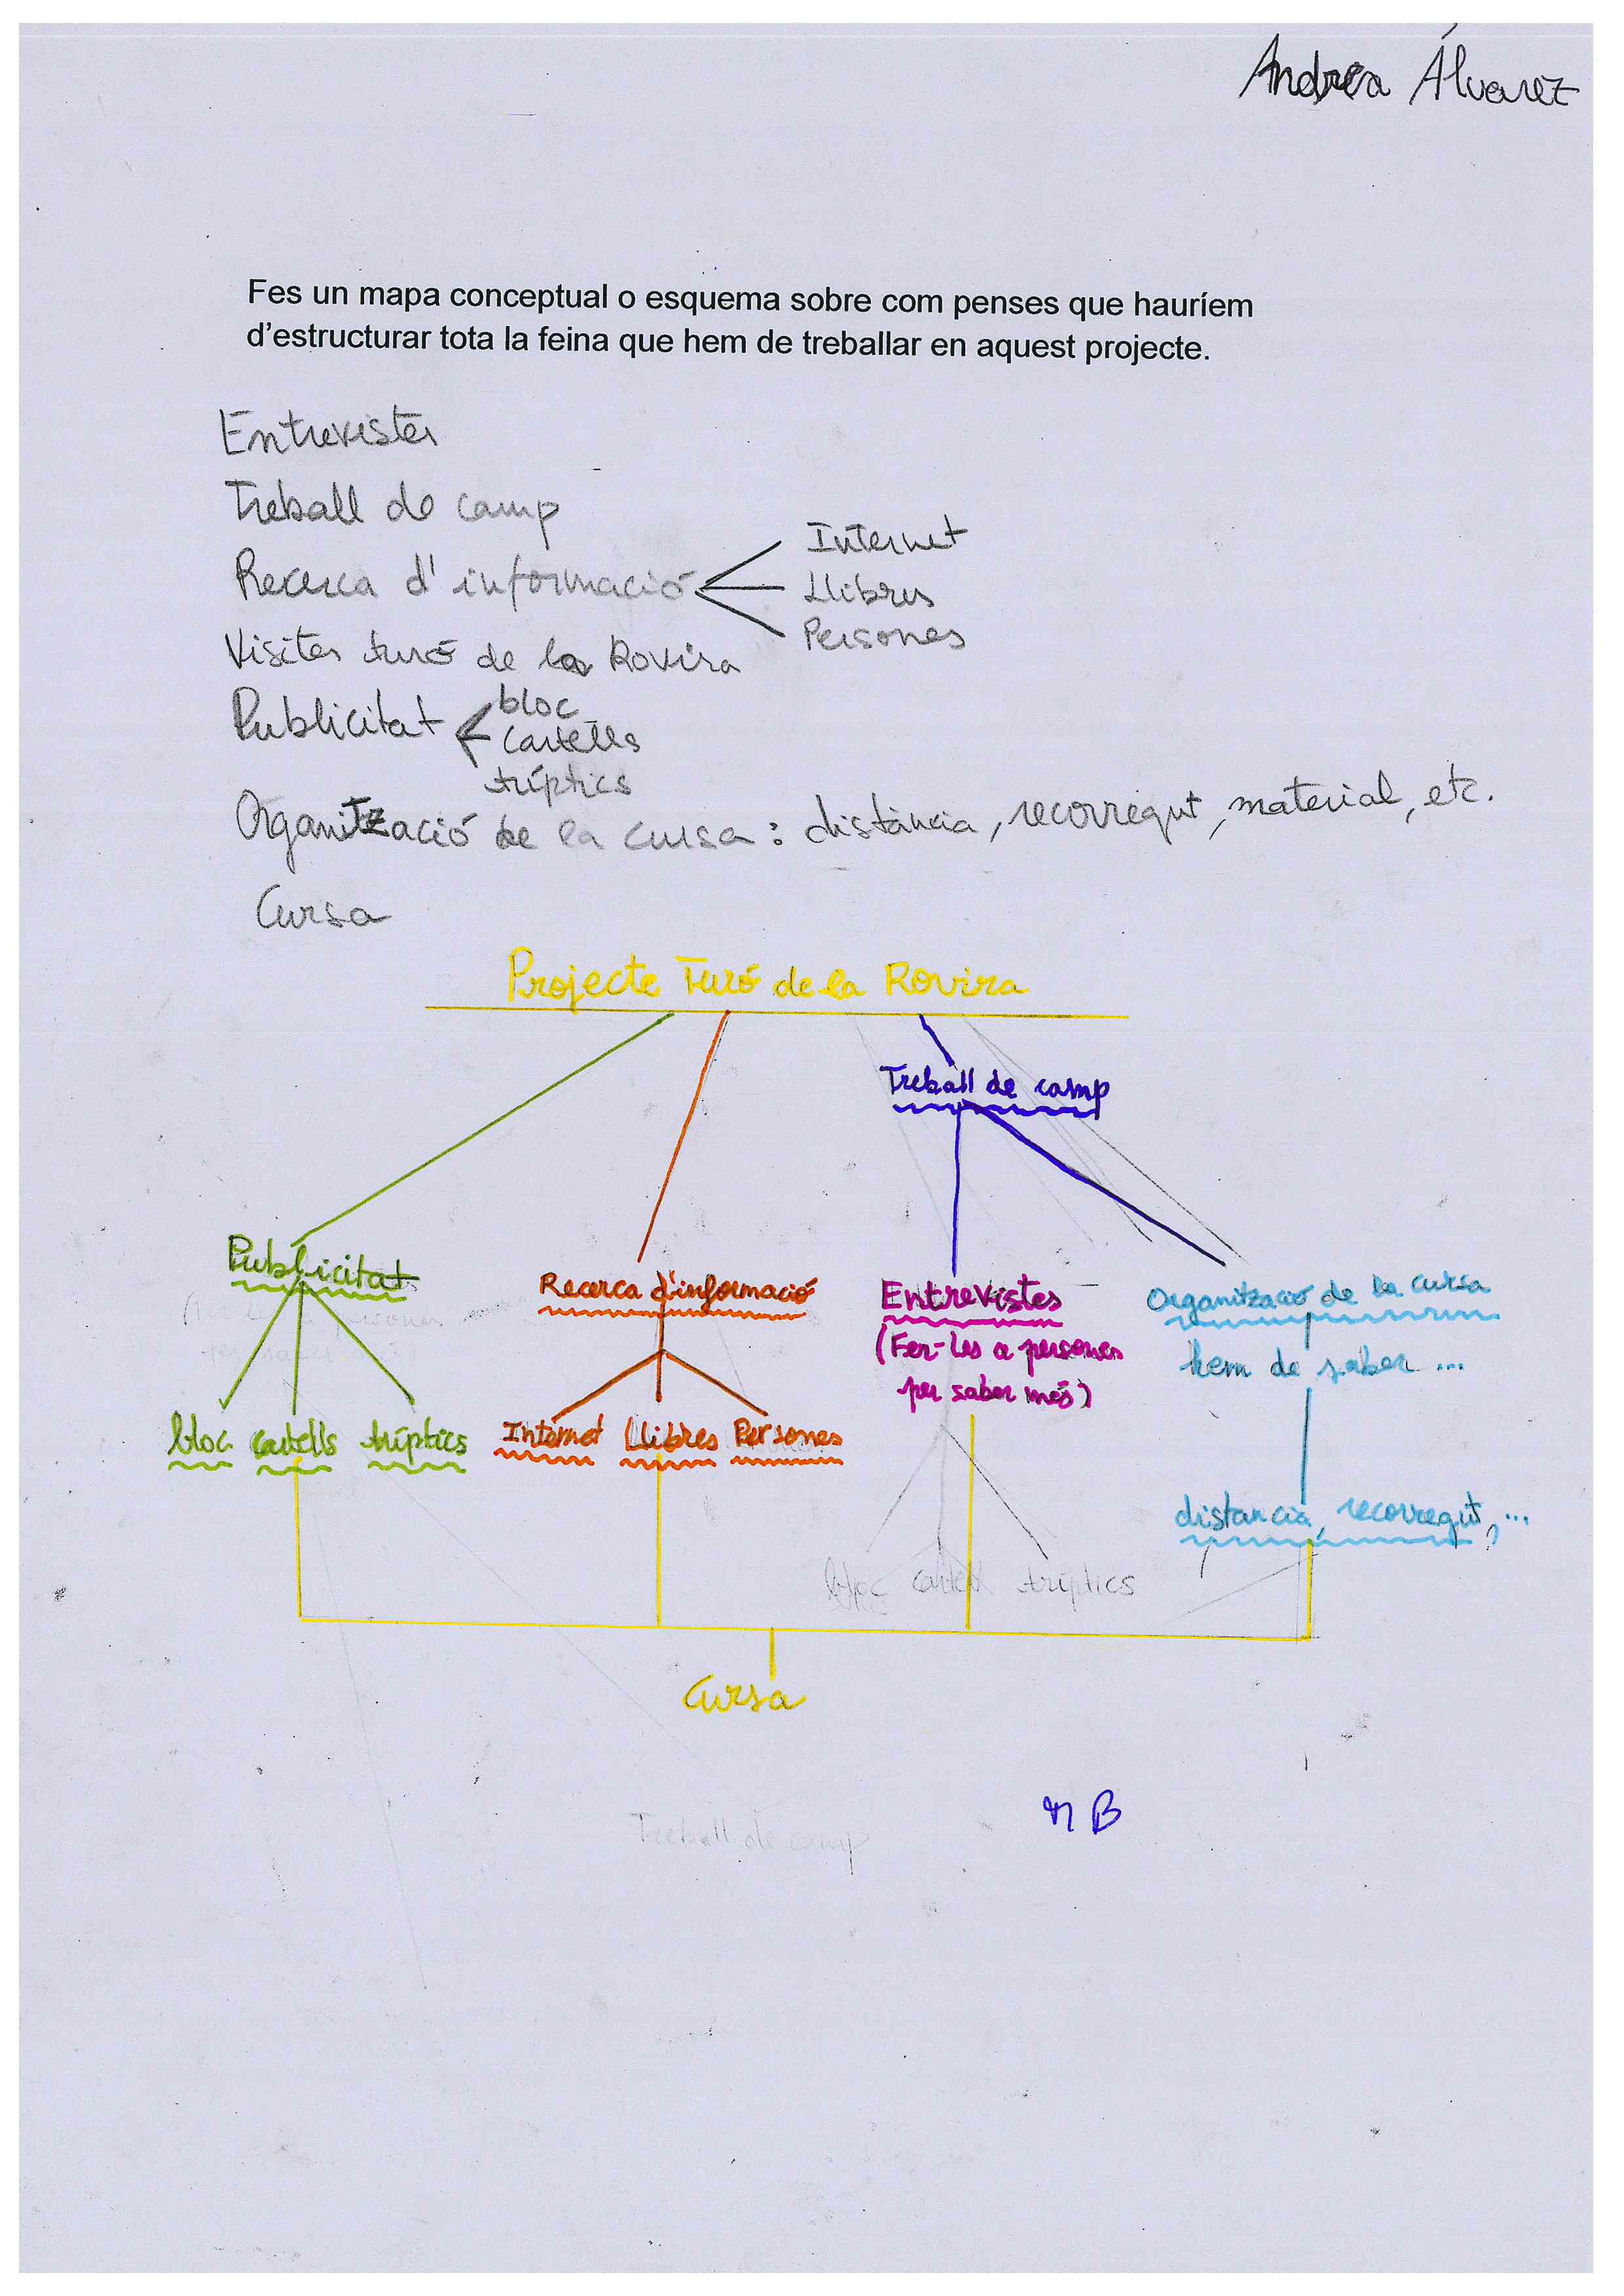 Andrea Álvarez
Fes un mapa conceptual o esquema sobre com penses que hauríem
d'estructurar tota la feina que hem de treballar en aquest projecte.
Entrevistes
Treball de camp
Recerca d'informació
Internet
Llibres
Persones
Visites turó de la Rovira
Publicitat
bloc
Cartells
tríptics
Organització de la cursa: distància, recorregut, material, etc.
Cursa
Projecte Turó de la Rovira
Treball de camp
Publicitat
Recerca d'informació
Entrevistes
(Fer-les a persones
per saber més)
Organització de la cursa
hem de saber ...
bloc cartells tríptics
Internet Llibres Persones
distancia, recorregut, ...
bloc cartell tríptics
Cursa
B
Treball de camp